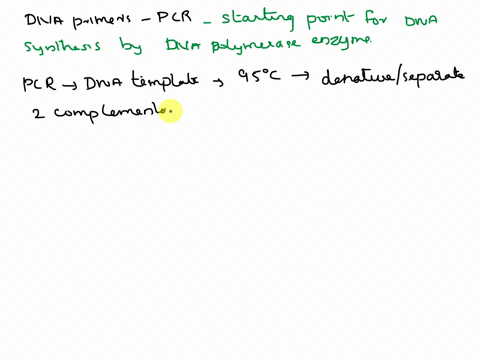 DNA primers - PCR - starting point for DNA
synthesis by DNA polymerase enzyme.
PCR → DNA template → 95°C → denature/separate
2 complementa